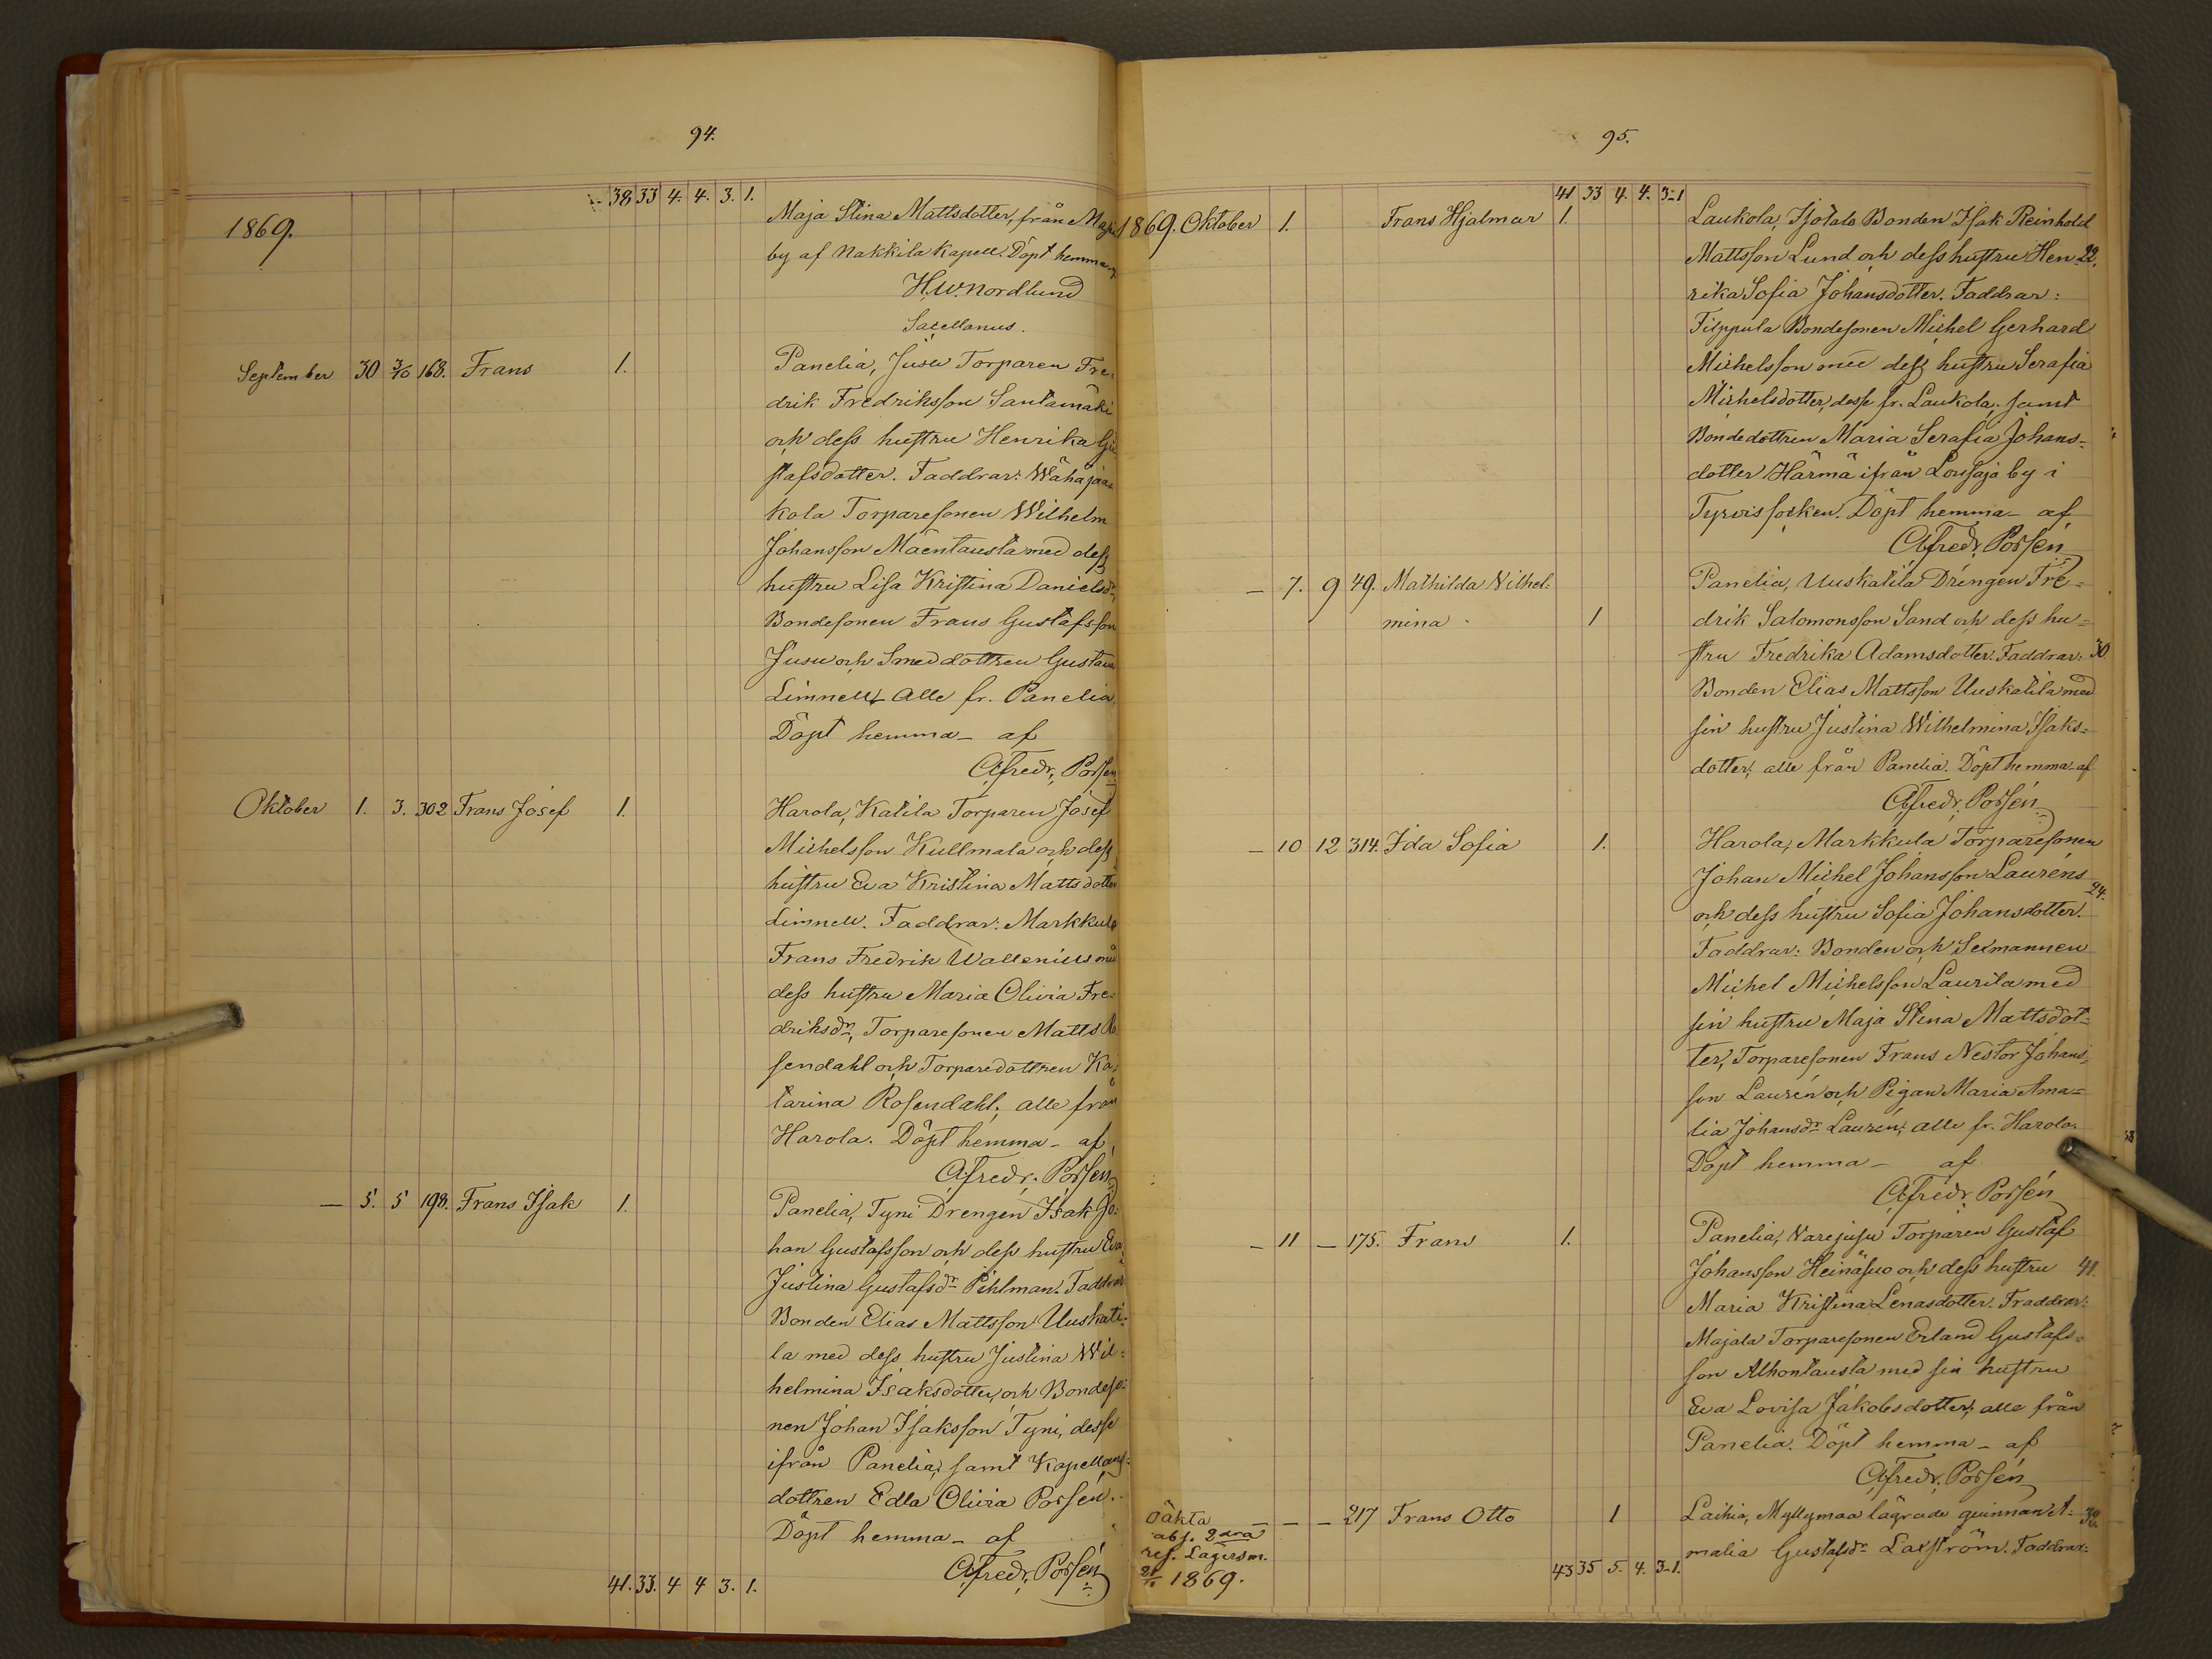 94.
38 33 4. 4. 3. 1.
1869.
Maja Stina Mattsdotter, från
by af Nakkila Kapell. Döpt hemma
H.W. Nordlund
Sacellanus.
September 30 3/10 168. Frans 1. Panelia, Jusu Torparen Fre-
drik Fredriksson Santamäki
och dess hustru Henrika Gu
stafsdotter. Faddrar: Wähäjaa-
kola Torparesonen Wilhelm
Johansson Mäentausta med dess
hustru Lisa Kristina Danielsdr,
Bondesonen Frans Gustafsson
Jusu och Smeddottren Gustava
Limnell, alle fr. Panelia.
Döpt hemma - af
A. Fredr. Porsén
Oktober 1. 3. 302 Frans Josef 1. Harola, Katila Torparen Josef
Michelsson Kullmala och dess
hustru Eva Kristina Mattsdotter
Limnell. Faddrar: Markkula
Frans Fredrik Wallenius med
dess hustru Maria Olivia Fre-
driksdr, Torparesonen Matts Ro
sendahl och Torparedottren Ka-
tarina Rosendahl; alle från
Harola. Döpt hemma - af
A. Fredr. Porsén
— 5. 5 198. Frans Isak 1. Panelia, Tyni Drengen Isak Jo-
han Gustafsson och dess hustru Eva
Justina Gustafsdr Pihlman. Faddrar
Bonden Elias Mattsson Uuskati-
la med dess hustru Justina Wil-
helmina Isaksdotter, och Bondeso-
nen Johan Isaksson Tyni, desse
ifrån Panelia; samt Kapellans-
dottren Edla Olivia Porsén.
Döpt hemma - af
A. Fredr. Porsén
41. 33. 4 4 3. 1.
95.
41 33 4. 4. 3-1
1869. Oktober 1. Frans Hjalmar 1. Laukola, Isotalo Bonden Isak Reinhold
Mattsson Lund och dess hustru Hen- 22.
rika Sofia Johansdotter. Faddrar:
Filppula Bondesonen Michel Gerhard
Michelsson med dess hustru Serafia
Michelsdotter, desse fr. Laukola, samt
Bondedottren Maria Serafia Johans-
dotter Härmä ifrån by i
Tyrvis socken. Döpt hemma - af
A. Fredr. Porsén
— 7. 9 49. Mathilda Vilhel- Panelia, Uuskatila Drengen Fre-
mina 1 drik Salomonsson Sand och dess hu-
stru Fredrika Adamsdotter. Faddrar: 30.
Bonden Elias Mattsson Uuskatila med
sin hustru Justina Wilhelmina Isaks-
dotter; alle från Panelia. Döpt hemma - af
A. Fredr. Porsén
— 10 12 314. Ida Sofia 1. Harola, Markkula Torparesonen
Johan Michel Johansson Lauréns
24.
och dess hustru Sofia Johansdotter.
Faddrar: Bonden och Sexmannen
Michel Michelsson Laurila med
sin hustru Maja Stina Mattsdot-
ter, Torparesonen Frans Nestor Johans-
son Laurén och Pigan Maria Ama-
lia Johansdr Laurén; alle fr. Harola.
Döpt hemma - af
A. Fredr. Porsén
— 11 — 175. Frans 1. Panelia, Varejusu Torparen Gustaf
Johansson Heinäsuo och dess hustru 41.
Maria Kristina Lenasdotter. Fraddrar:
Majala Torparesonen Erland Gustafs-
son Alhontausta med sin hustru
Eva Lovisa Jakobsdotter; alle från
Panelia. Döpt hemma - af
A. Fredr. Porsén
Oäkta — — — 217 Frans Otto 1 Laihia, Myllymaa lägrade quinnan A- 32.
abs. 2dra
ref. Lägersm. malia Gustafsdr Laxström. Faddrar:
21/11 1869.
43 35 5. 4. 3-1.